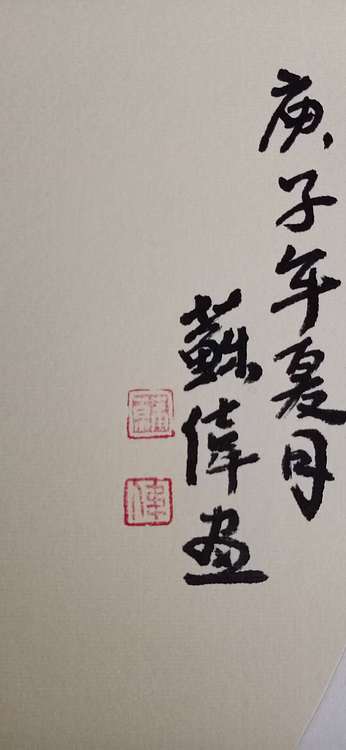 庚子年夏月
蘇偉画
蘇
偉